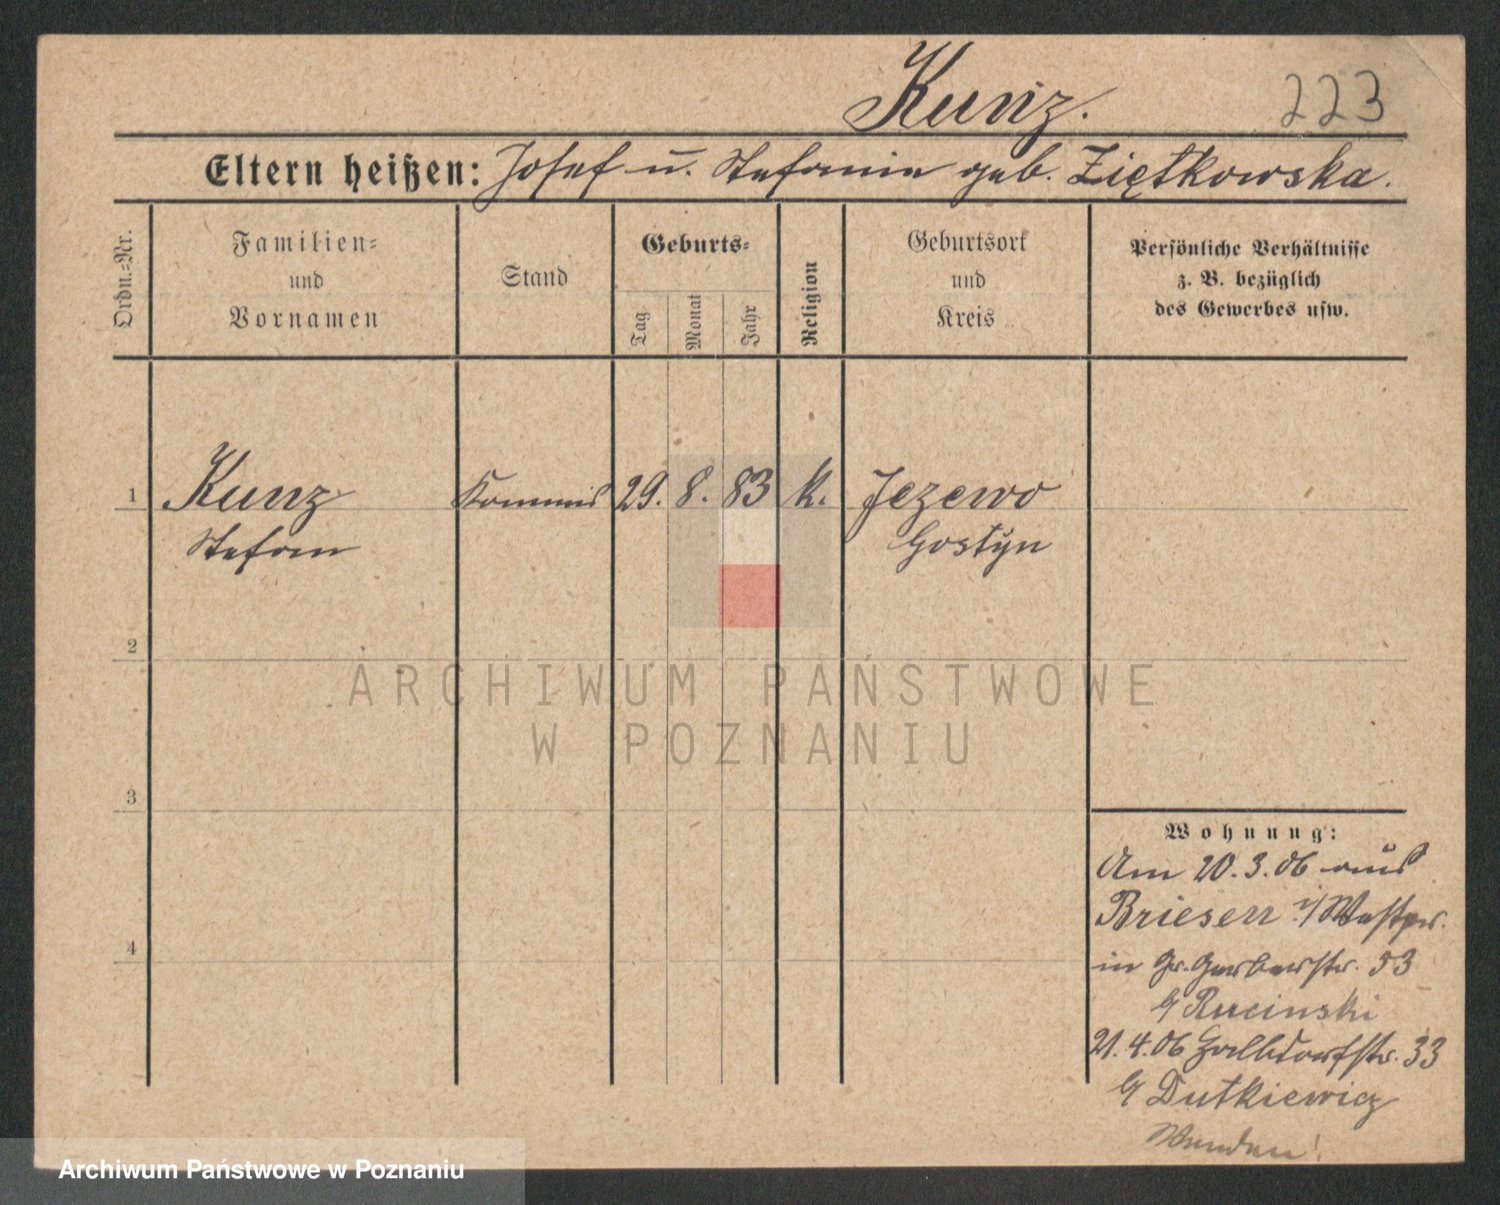 Kunz.
223
Eltern heißen: Josef u. Stefanie geb. Ziętkowska.
Ordn.-Nr.
Familien-
und
Vornamen
Stand
Geburts-
Tag
Monat
Jahr
Religion
Geburtsort
und
Kreis
Persönliche Verhältnisse
z. B. bezüglich
des Gewerbes usw.
1 Kunz Kommis 29. 8. 83 k. Jezewo
Stefan Gostyn
2
3
4
Wohnung:
Am 20.3.06 aus
Briesen i/Westpr.
in Gr. Gerberstr. 53
b/ Rucinski
21.4.06 Halbdorfstr. 33
b/ Dutkiewicz
Wenden!
ARCHIWUM PAŃSTWOWE
W POZNANIU
Archiwum Państwowe w Poznaniu